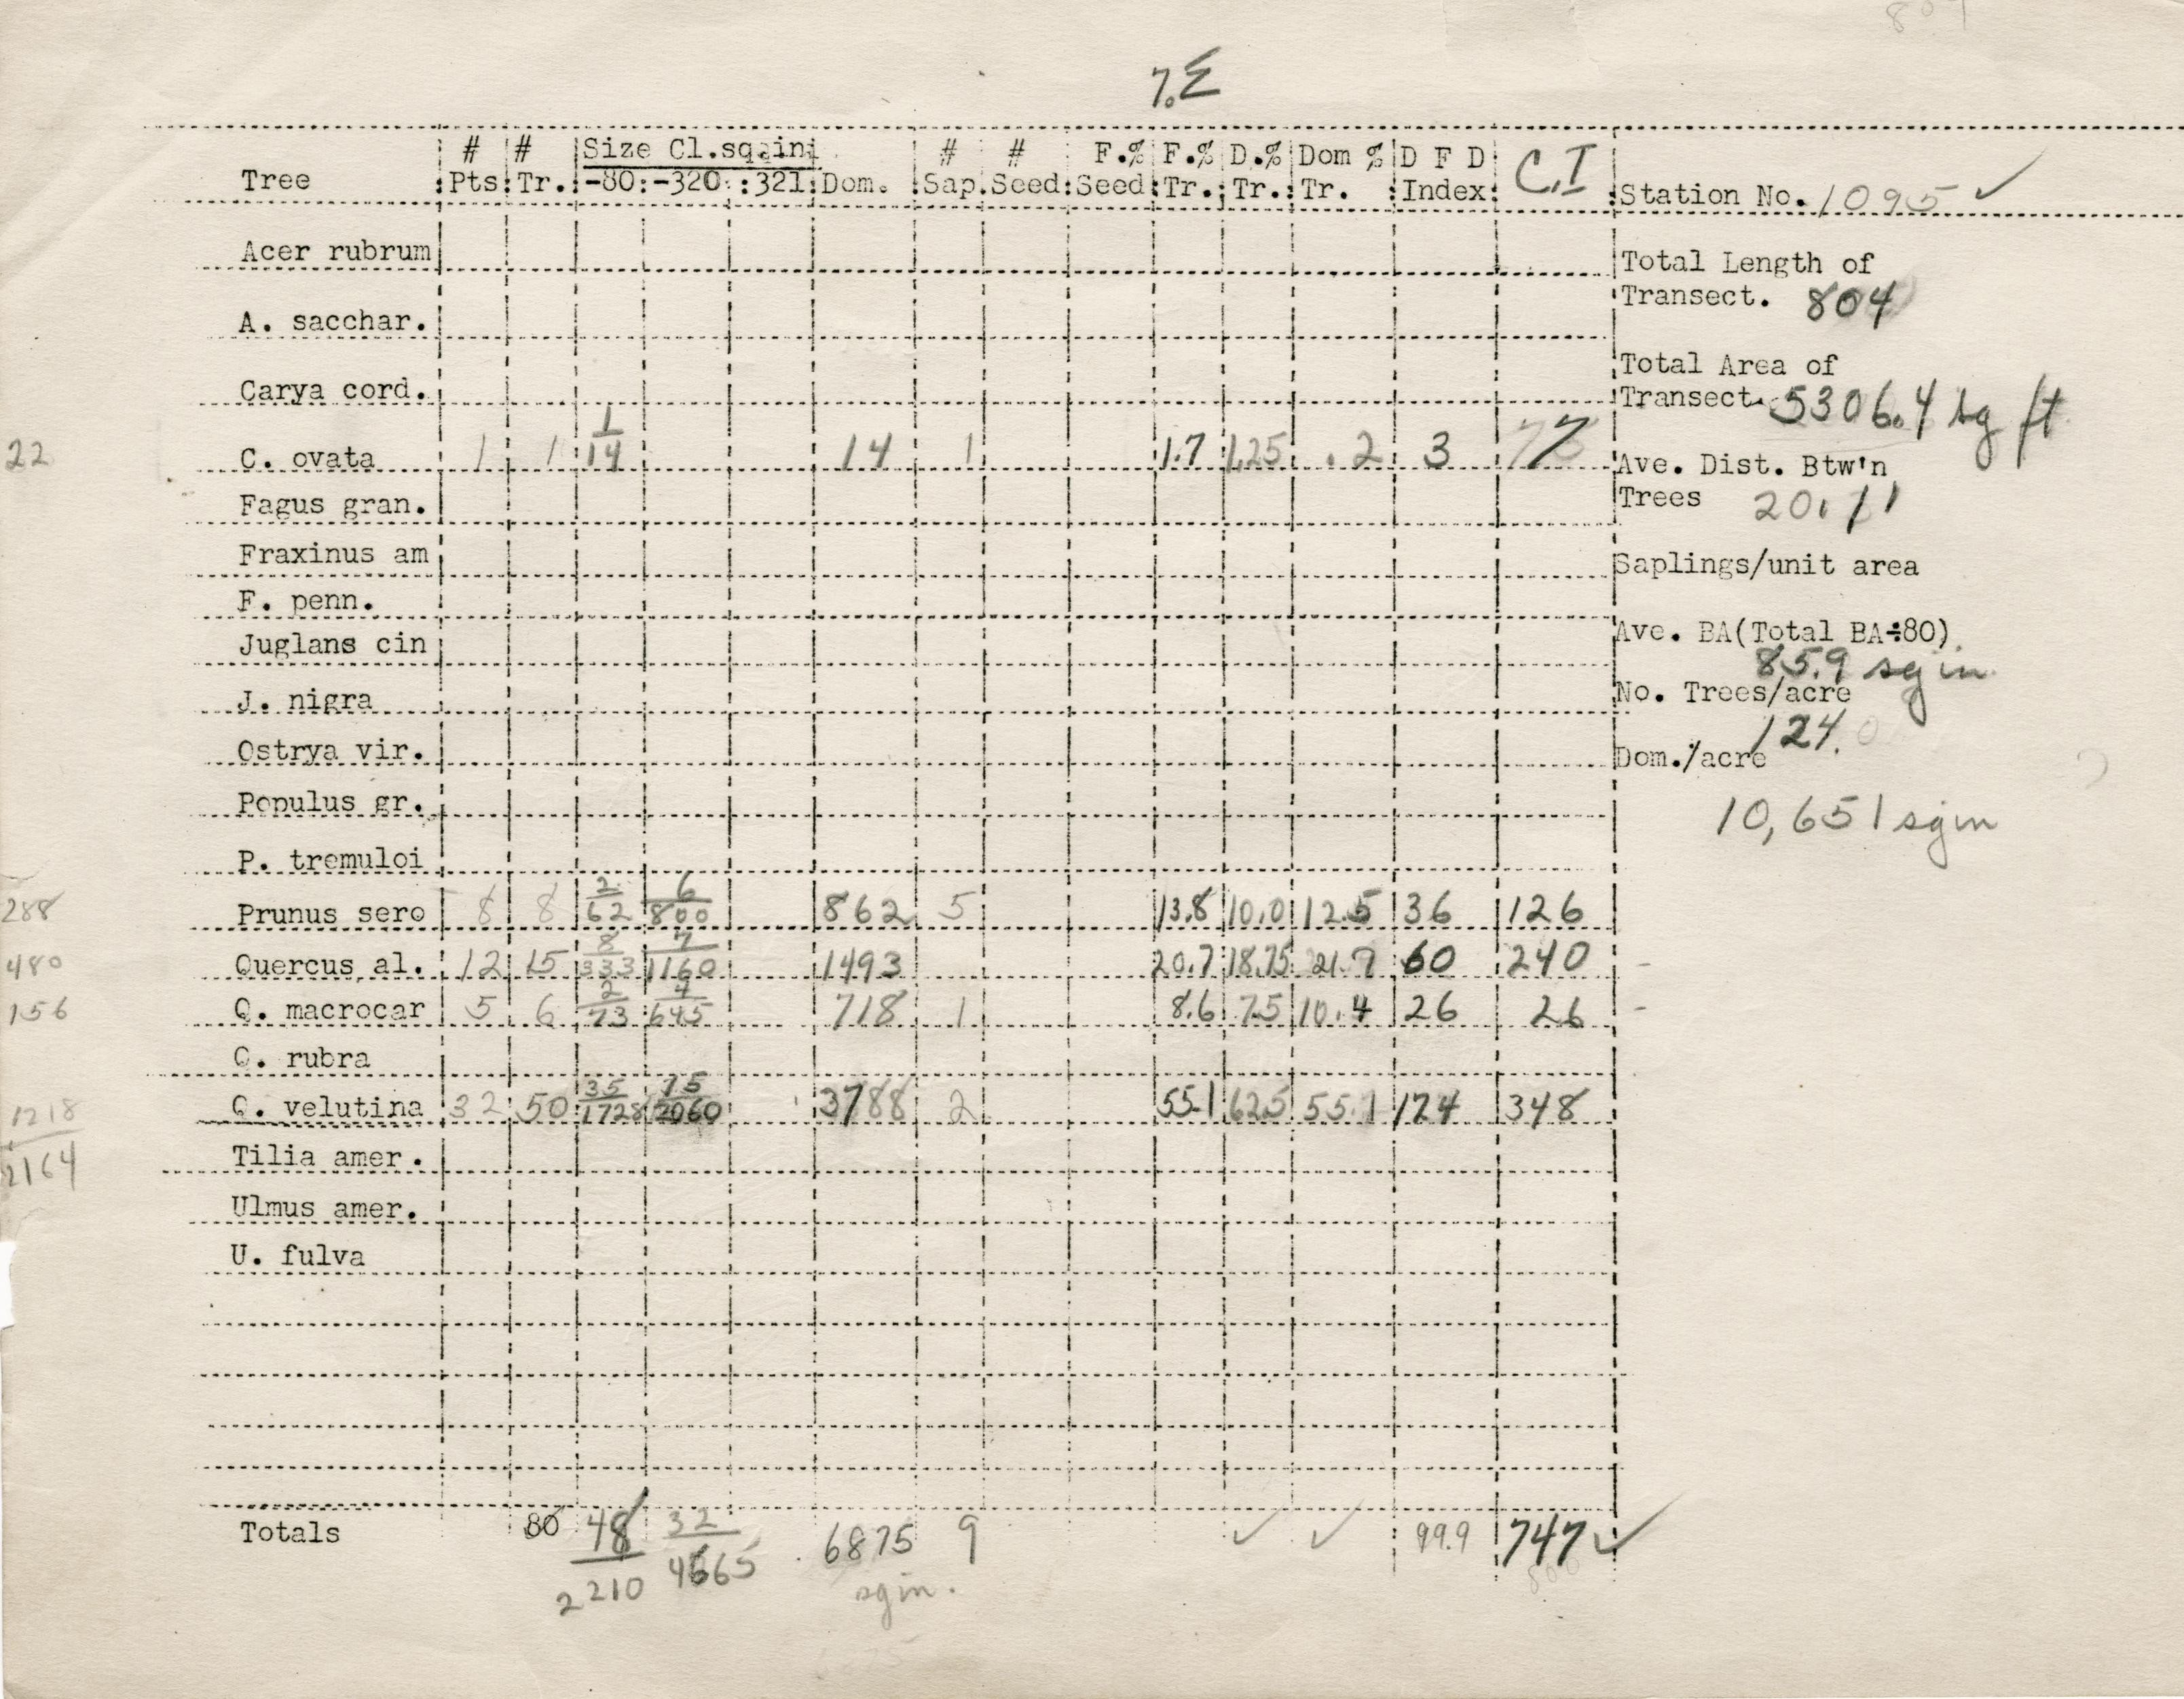 7.Σ
# # Size Cl.sq.in # # F.% F.% D.% Dom % D F D C.I
Tree Pts Tr. -80 -320 321 Dom. Sap. Seed Seed Tr. Tr. Tr. Index Station No. 1095 ✓
Acer rubrum
A. sacchar.
Carya cord.
22 C. ovata 1 1 1/14 14 1 1.7 1.25 .2 3
Fagus gran.
Fraxinus am
F. penn.
Juglans cin
J. nigra
Ostrya vir.
Populus gr.
P. tremuloi
288 Prunus sero 8 8 2/62 6/800 862 5 13.8 10.0 12.5 36 126
480 Quercus al. 12 15 8/333 7/1160 1493 20.7 18.75 21.7 60 240
156 Q. macrocar 5 6 2/73 4/645 718 1 8.6 7.5 10.4 26 26
Q. rubra
1218 Q. velutina 32 50 35/1728 15/2060 3788 2 55.1 62.5 55.1 174 348
2164
Tilia amer.
Ulmus amer.
U. fulva
Totals 80 48/2210 32/4665 6875 9 ✓ ✓ 99.9 747 ✓
sq in.
Total Length of
Transect. 804
Total Area of
Transect. 5306.4 sq ft
Ave. Dist. Btw'n
Trees 20.11
Saplings/unit area
Ave. BA(Total BA÷80)
85.9 sq in
No. Trees/acre
124.0
Dom./acre
10,651 sq in